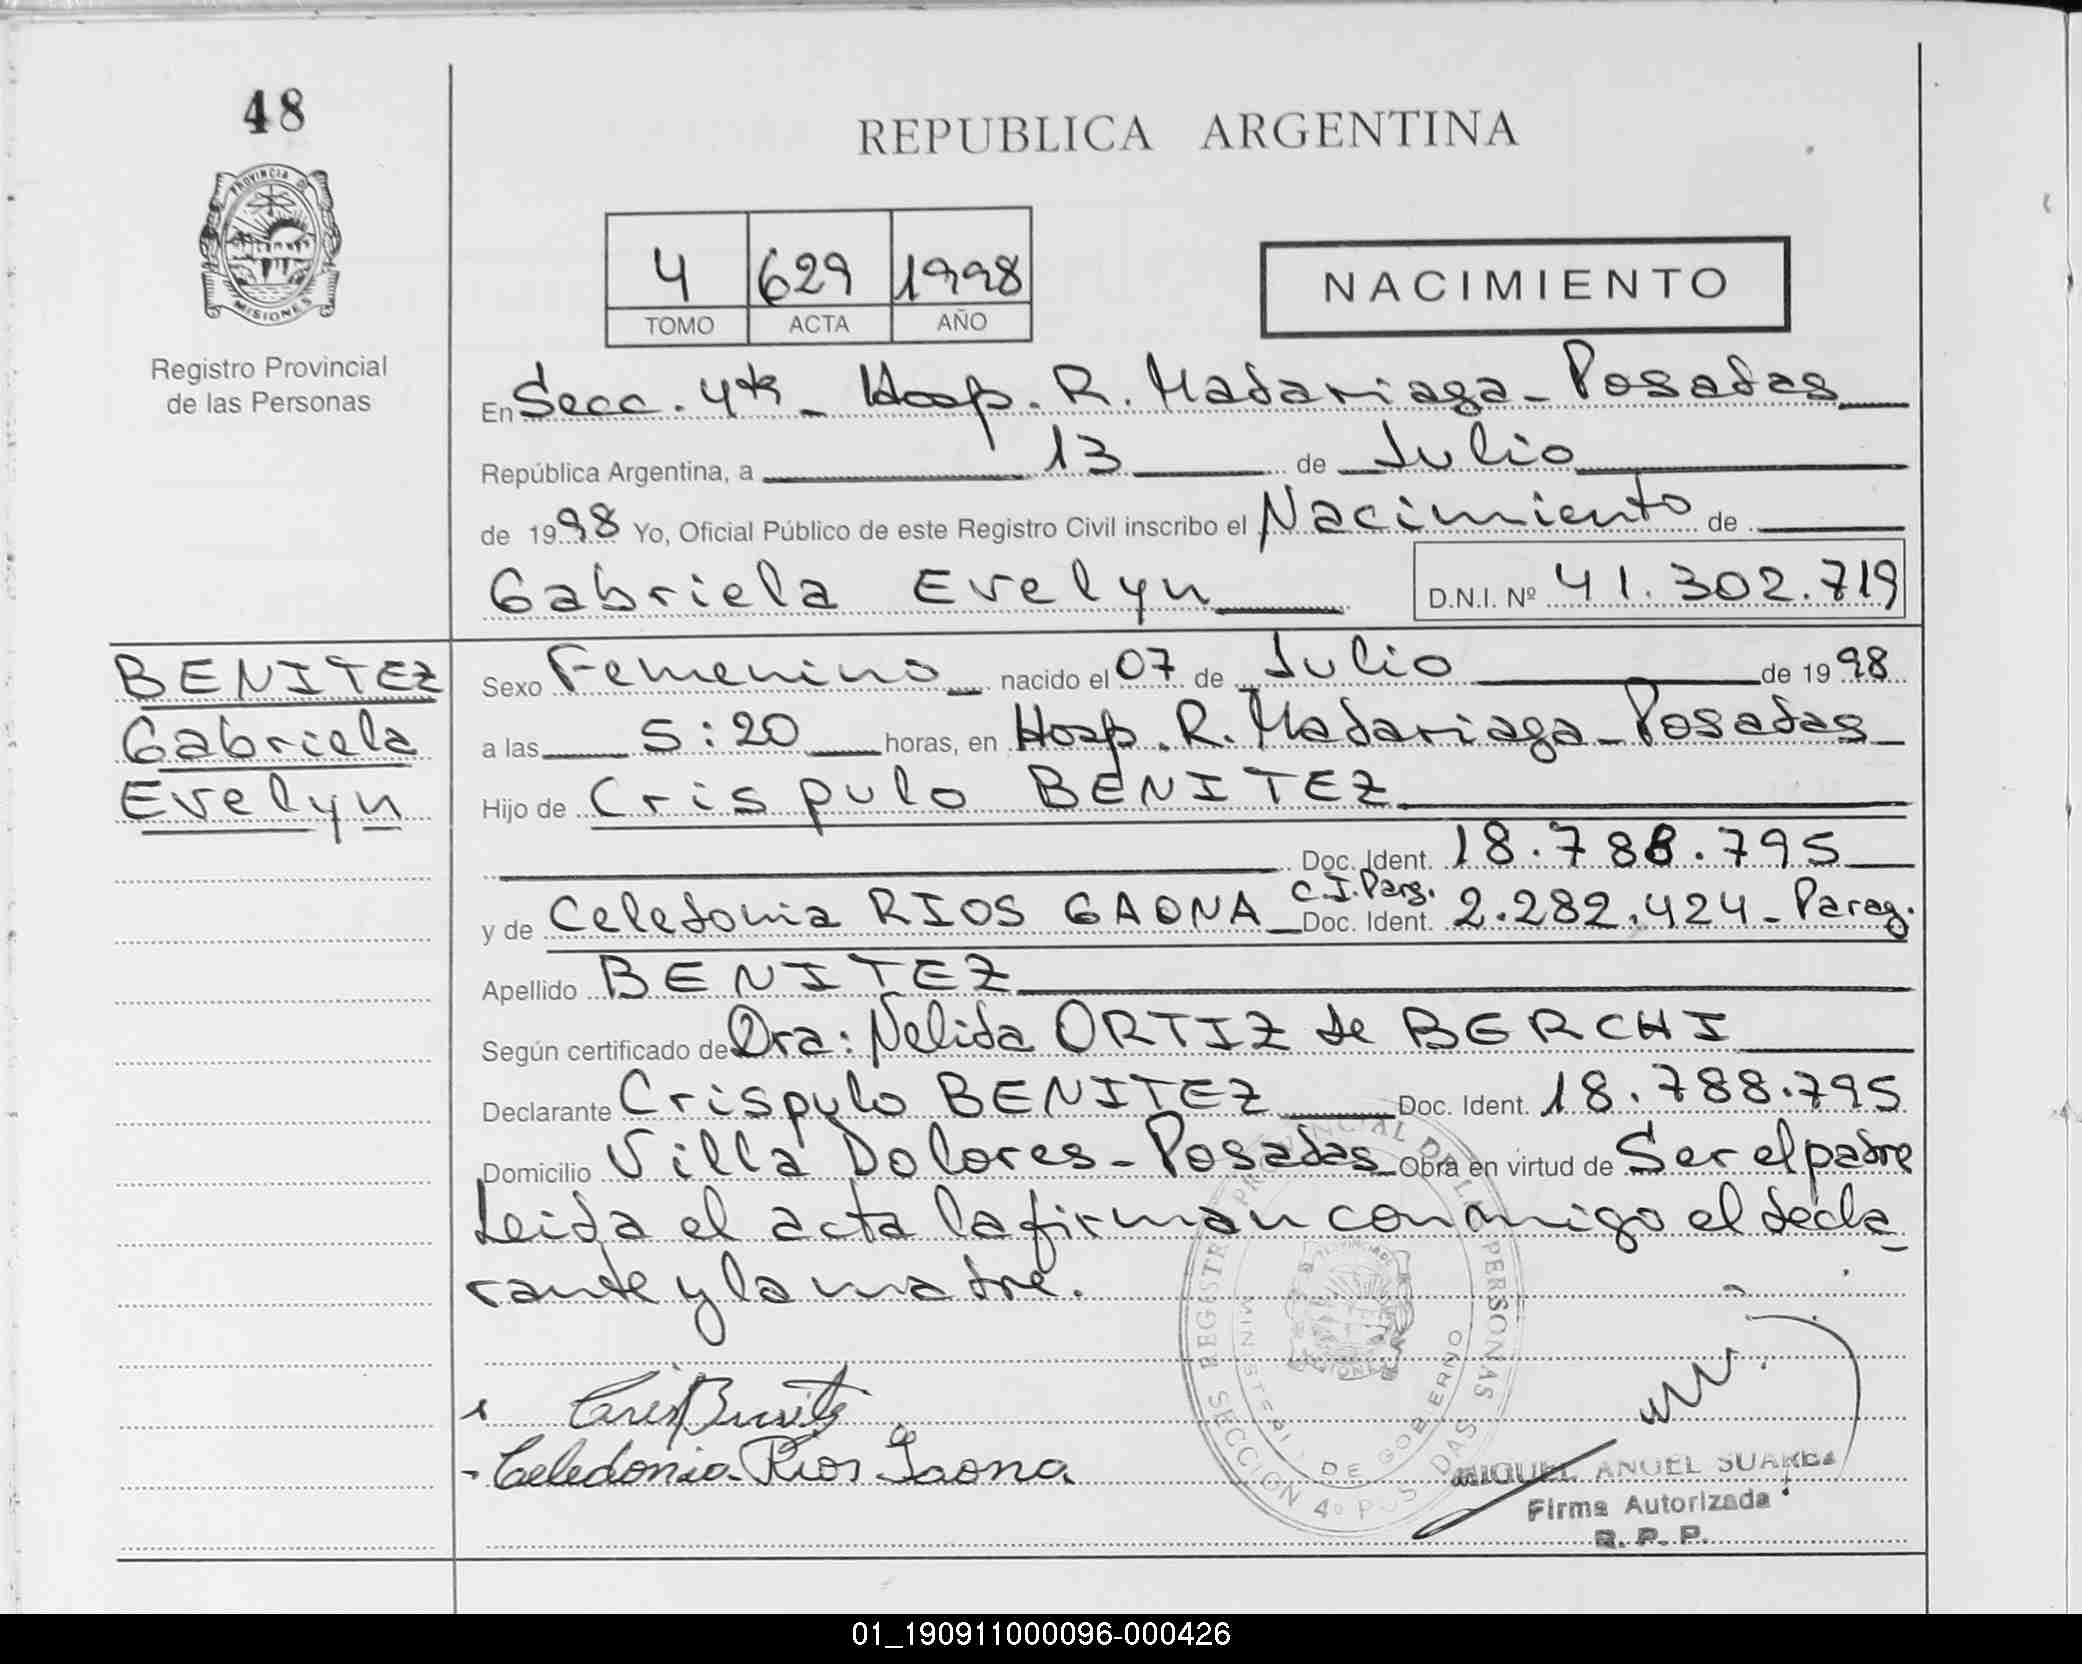 48
REPUBLICA ARGENTINA
PROVINCIA DE
MISIONES
Registro Provincial
de las Personas
4 629 1998
TOMO ACTA AÑO
NACIMIENTO
En Secc. 4ta - Hosp. R. Madariaga - Posadas
República Argentina, a 13 de Julio
de 1998 Yo, Oficial Público de este Registro Civil inscribo el Nacimiento de
Gabriela Evelyn D.N.I. Nº 41.302.719
BENITEZ
Gabriela
Evelyn
Sexo Femenino nacido el 07 de Julio de 1998
a las 5:20 horas, en Hosp. R. Madariaga - Posadas
Hijo de Crispulo BENITEZ
Doc. Ident. 18.788.795
y de Celedonia RIOS GAONA C.I. Parg. Doc. Ident. 2.282.424 - Parag.
Apellido BENITEZ
Según certificado de Dra: Nelida ORTIZ de BERCHI
Declarante Crispulo BENITEZ Doc. Ident. 18.788.795
Domicilio Villa Dolores - Posadas Obra en virtud de Ser el padre
Leida el acta la firman conmigo el decla
rante y la madre.
REGISTRO PROVINCIAL DE LAS PERSONAS
MINISTERIO DE GOBIERNO
SECCION 4º POSADAS
Celedonia Rios Gaona
MIGUEL ANGEL SUAREZ
Firma Autorizada
R. P. P.
01_190911000096-000426